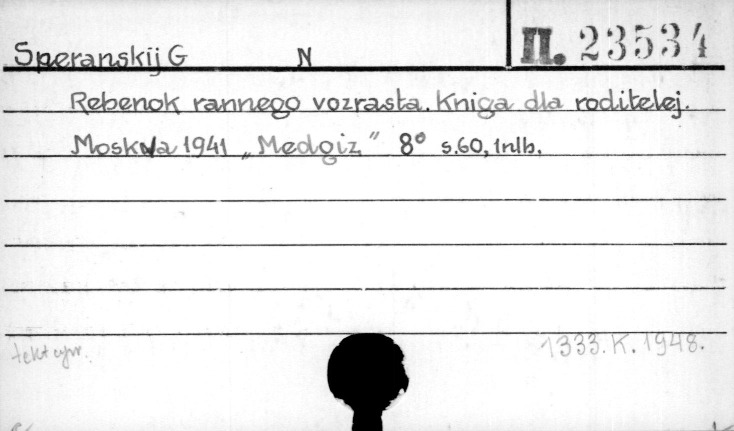 Speranskij G N II. 23534
Rebenok rannego vozrasta. Kniga dla roditelej.
Moskva 1941 „Medgiz" 8° s.60, 1nlb.
1333.K.1948.